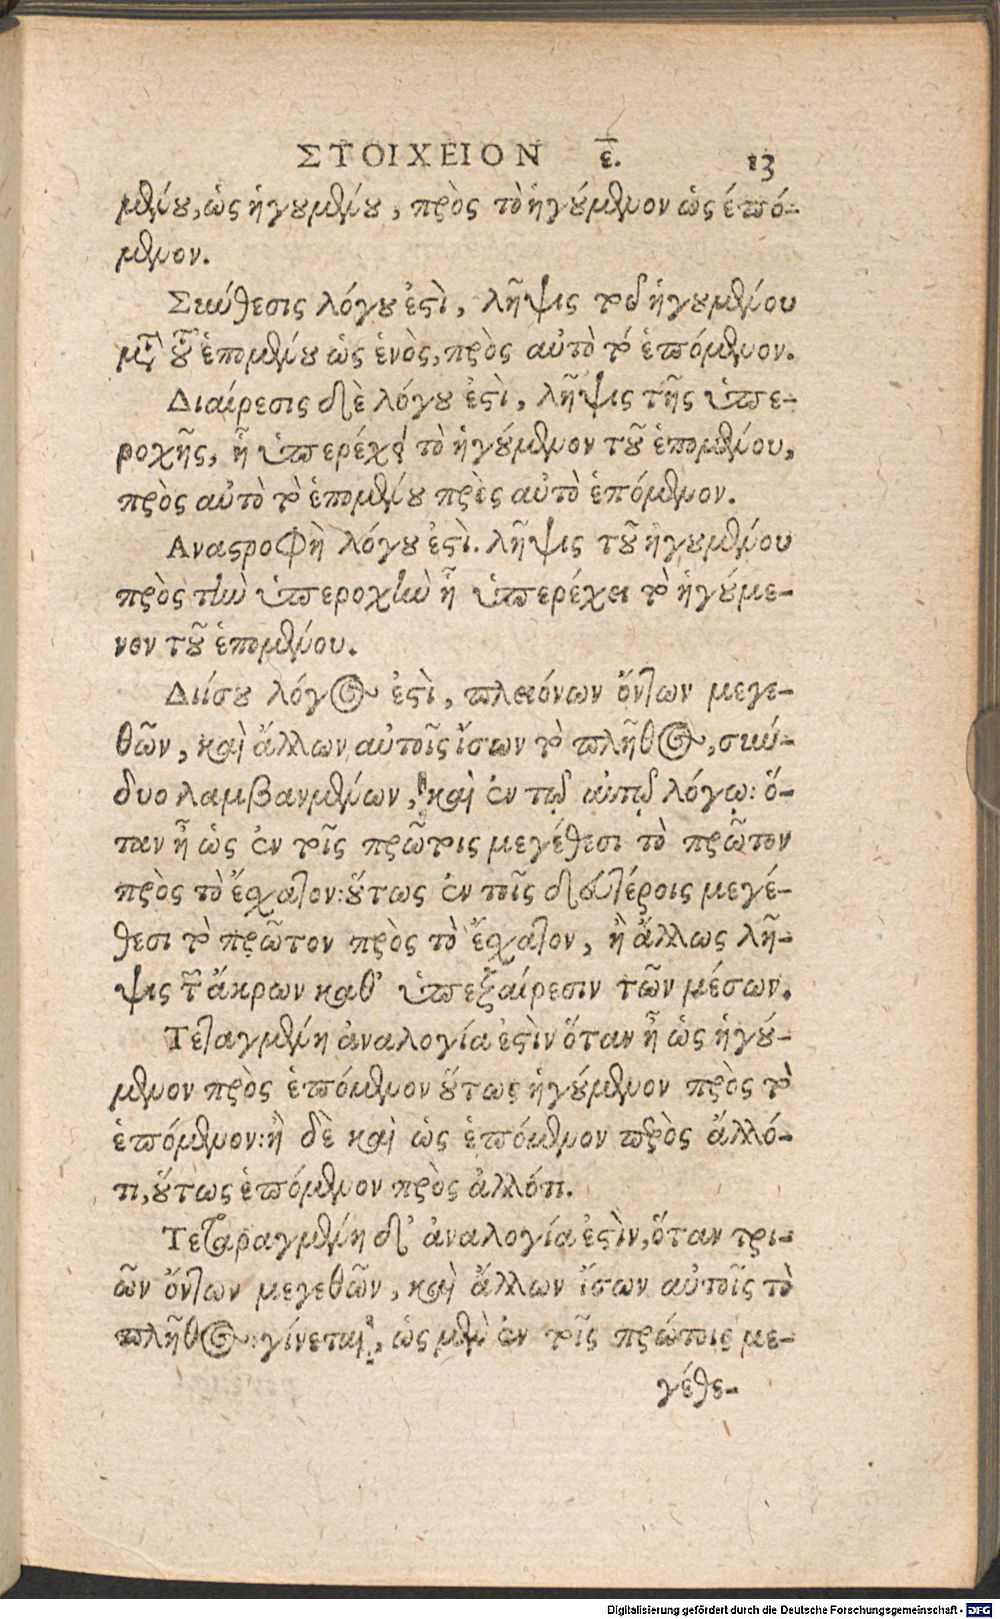 ΣΤΟΙΧΕΙΟΝ ε. 13
μένου, ὡς ἡγουμένου, πρὸς τὸ ἡγούμενον ὡς ἑπό-
μενον.
Σύνθεσις λόγου ἐστὶ, λῆψις τοῦ ἡγουμένου
μετὰ τοῦ ἑπομένου ὡς ἑνὸς, πρὸς αὐτὸ τὸ ἑπόμενον.
Διαίρεσις δὲ λόγου ἐστὶ, λῆψις τῆς ὑπε-
ροχῆς, ᾗ ὑπερέχει τὸ ἡγούμενον τοῦ ἑπομένου,
πρὸς αὐτὸ τὸ ἑπομένου πρὸς αὐτὸ ἑπόμενον.
Αναστροφὴ λόγου ἐστὶ. λῆψις τοῦ ἡγουμένου
πρὸς τὴν ὑπεροχὴν ᾗ ὑπερέχει τὸ ἡγούμε-
νον τοῦ ἑπομένου.
Διίσου λόγος ἐστὶ, πλειόνων ὄντων μεγε-
θῶν, καὶ ἄλλων αὐτοῖς ἴσων τὸ πλῆθος, σύν-
δυο λαμβανμένων, καὶ ἐν τῷ αὐτῷ λόγῳ: ὅ-
ταν ᾖ ὡς ἐν τοῖς πρώτοις μεγέθεσι τὸ πρῶτον
πρὸς τὸ ἔσχατον: οὕτως ἐν τοῖς δευτέροις μεγέ-
θεσι τὸ πρῶτον πρὸς τὸ ἔσχατον, ἢ ἄλλως λῆ-
ψις τῶν ἄκρων καθ' ὑπεξαίρεσιν τῶν μέσων.
Τεταγμένη ἀναλογία ἐστὶν ὅταν ᾖ ὡς ἡγού-
μενον πρὸς ἑπόμενον οὕτως ἡγούμενον πρὸς τὸ
ἑπόμενον: ᾖ δὲ καὶ ὡς ἑπόμενον πρὸς ἄλλό-
τι, οὕτως ἑπόμενον πρὸς ἀλλότι.
Τεταραγμένη δ' ἀναλογία ἐστὶν, ὅταν τρι-
ῶν ὄντων μεγεθῶν, καὶ ἄλλων ἴσων αὐτοῖς τὸ
πλῆθος: γίνεται, ὡς μὲν ἐν τοῖς πρώτοις με-
γέθε-
Digitalisierung gefördert durch die Deutsche Forschungsgemeinschaft - DFG